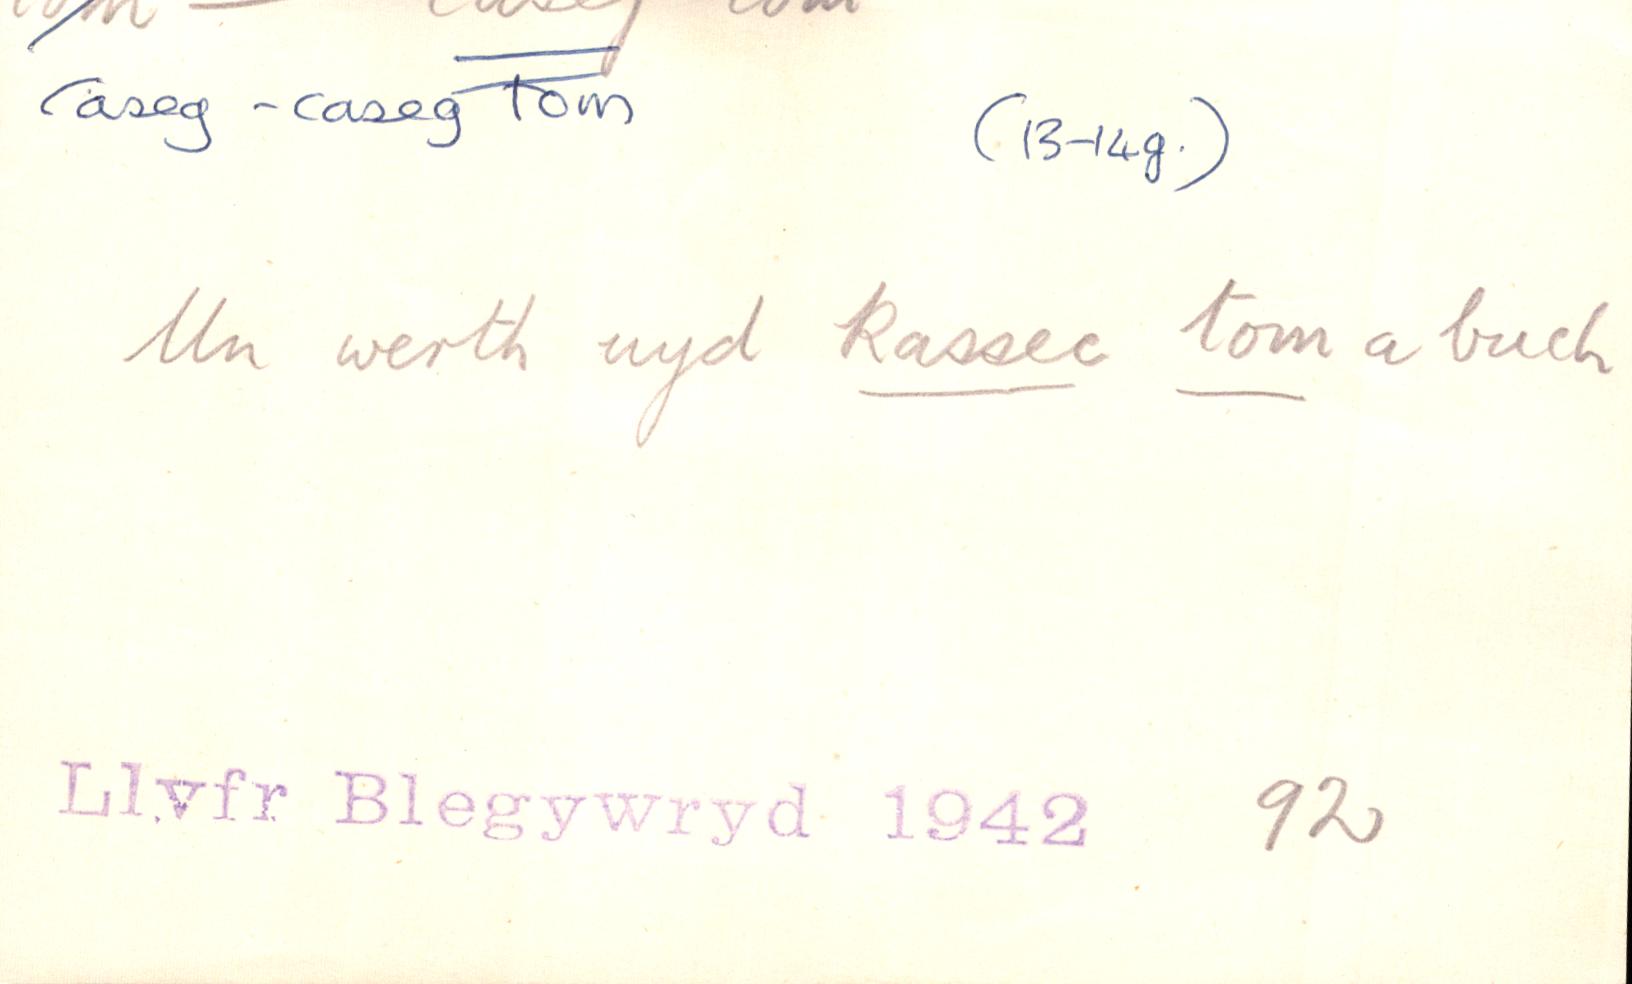 tom — caseg tom
caseg - caseg tom (13-14g.)
Un werth uyd kassec tom a buch
Llyfr Blegywryd 1942 92